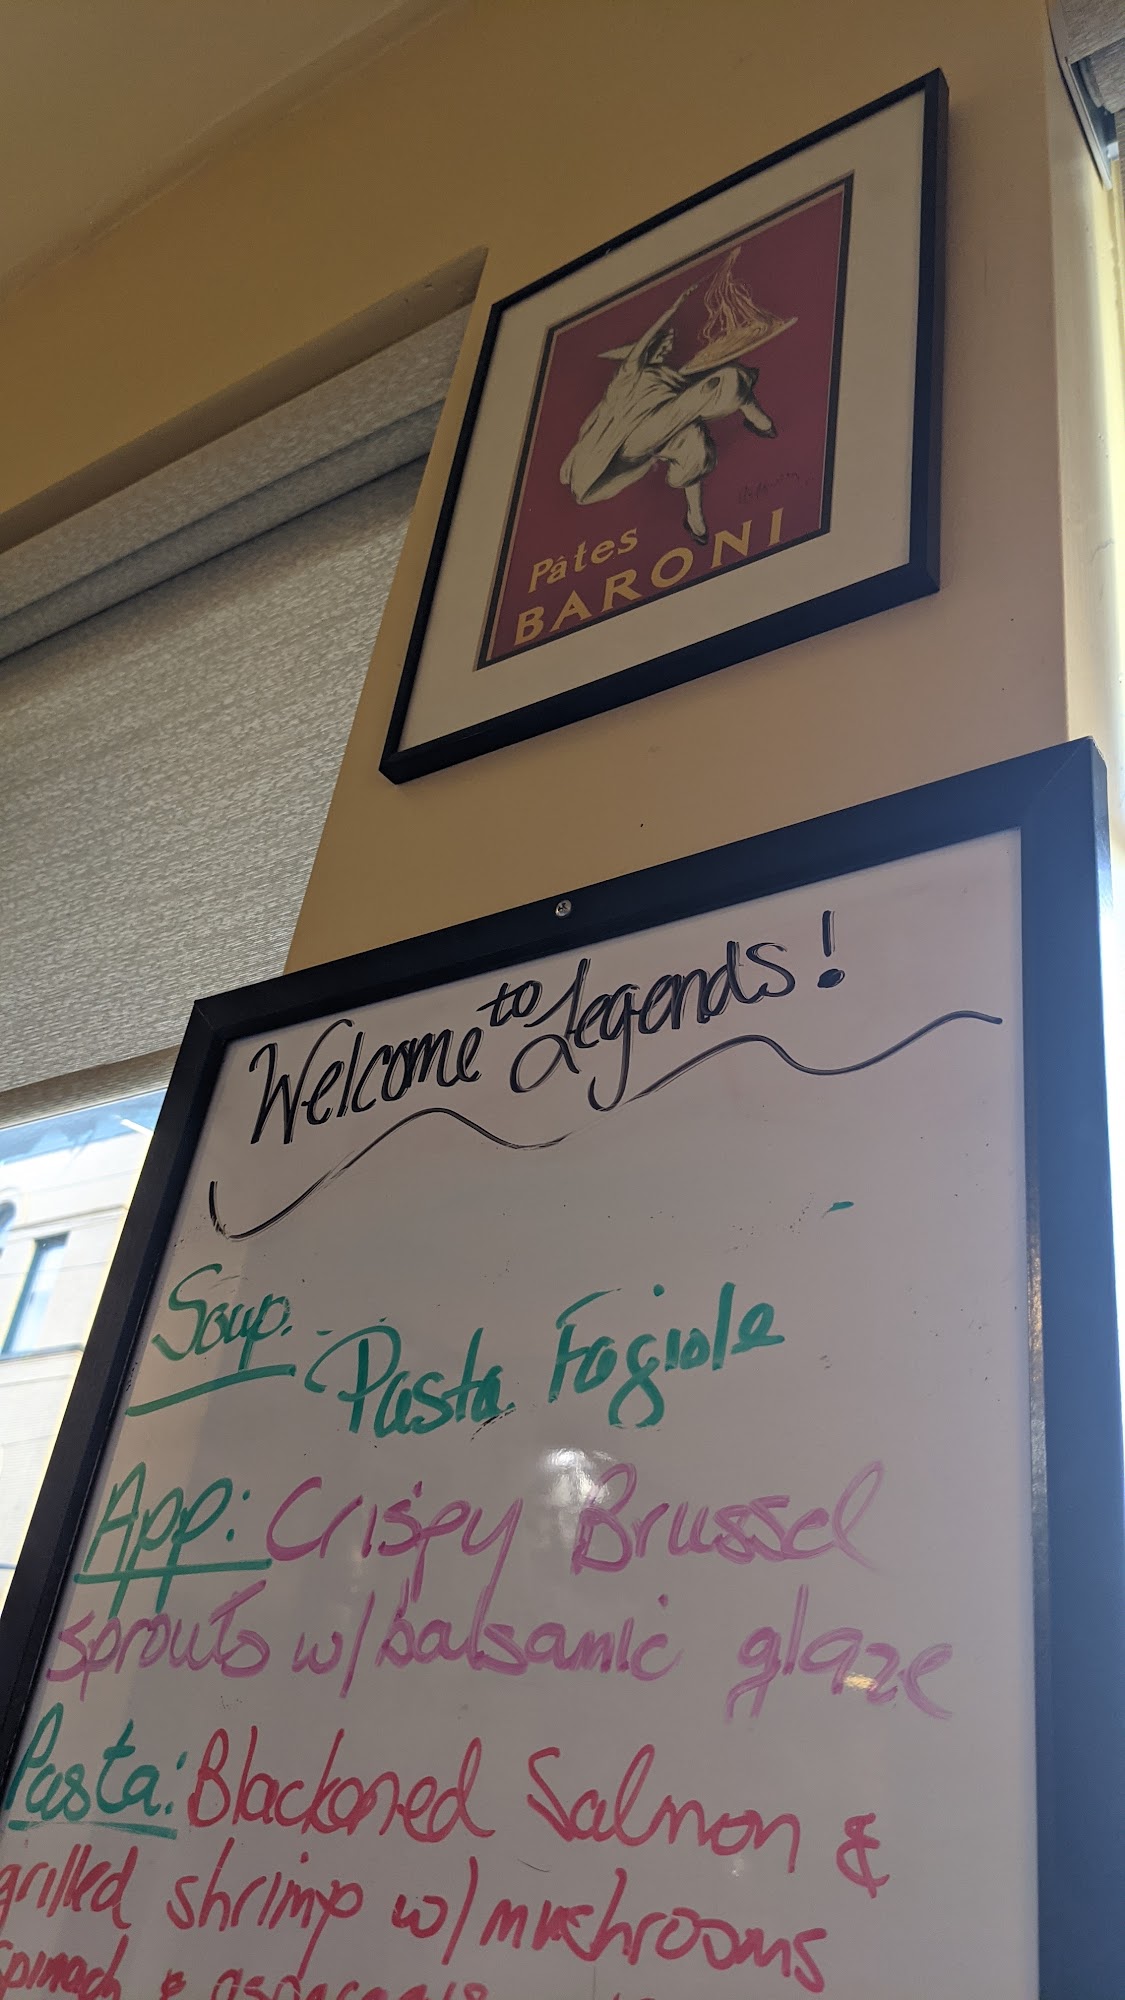 Pâtes
BARONI
Welcome to Legends!
Soup:
Pasta Fagiole
App: Crispy Brussel
sprouts w/ balsamic glaze
Pasta: Blackened Salmon &
grilled shrimp w/ mushrooms
spinach & asparagus